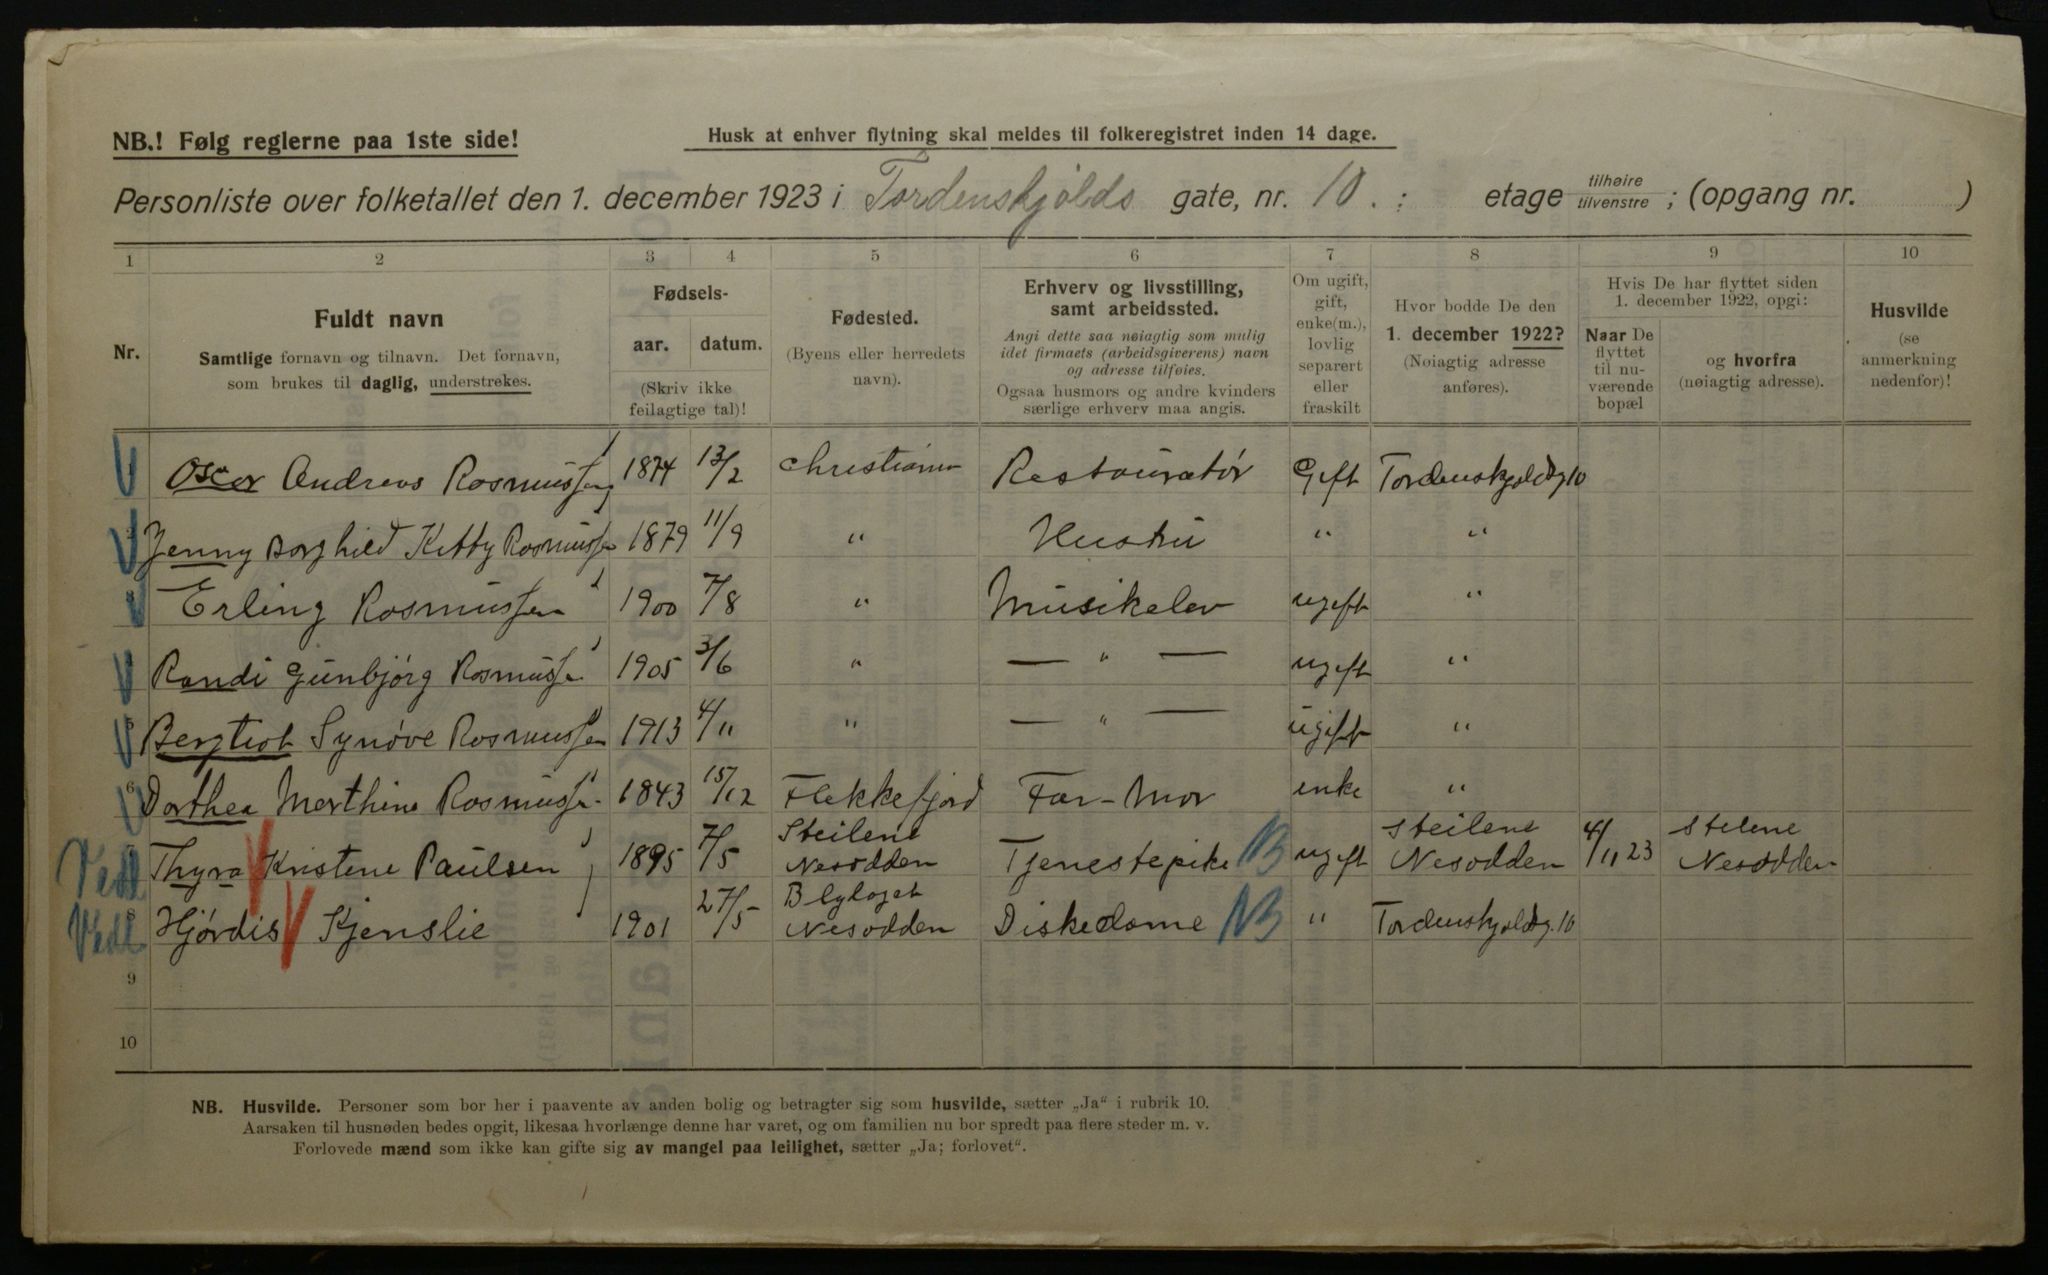 NB.! Følg reglerne paa 1ste side!
Husk at enhver flytning skal meldes til folkeregistret inden 14 dage.
Personliste over folketallet den 1. december 1923 i Tordenskjolds gate, nr. 10. ; etage tilhøire tilvenstre ; (opgang nr. )
1 2 3 4 5 6 7 8 9 10
Nr.
Fuldt navn
Samtlige fornavn og tilnavn. Det fornavn,
som brukes til daglig, understrekes.
Fødsels-
aar. datum.
(Skriv ikke
feilagtige tal)!
Fødested.
(Byens eller herredets
navn).
Erhverv og livsstilling,
samt arbeidssted.
Angi dette saa nøiagtig som mulig
idet firmaets (arbeidsgiverens) navn
og adresse tilføies.
Ogsaa husmors og andre kvinders
særlige erhverv maa angis.
Om ugift,
gift,
enke(m.),
lovlig
separert
eller
fraskilt
Hvor bodde De den
1. december 1922?
(Nøiagtig adresse
anføres).
Hvis De har flyttet siden
1. december 1922, opgi:
Naar De
flyttet
til nu-
værende
bopæl
og hvorfra
(nøiagtig adresse).
Husvilde
(se
anmerkning
nedenfor)!
Oscar Andreas Rosmussen 1874 13/2 Christiania Restauratør Gift Tordenskjoldsg 10
Jenny Borghild Kitty Rosmussen 1879 11/9 " Hustru " "
Erling Rosmussen 1900 7/8 " Musikelev ugift "
Randi Gunbjørg Rosmussen 1905 3/6 " — " — ugift "
5 Bergliot Synøve Rosmussen 1913 4/11 " — " — ugift "
6 Dorthea Marthine Rosmussen 1843 15/12 Flekkefjord Far-Mor enke "
Vedl Thyra Kristene Paulsen 1895 7/5 Steilene Nesodden Tjenestepike NB ugift Steilene Nesodden 4/11 23 Stelene Nesodden
Vedl 8 Hjørdis Kjenslie 1901 27/5 Nesodden Diskedame NB " Tordenskjoldsg. 10
9
10
NB. Husvilde. Personer som bor her i paavente av anden bolig og betragter sig som husvilde, sætter „Ja“ i rubrik 10.
Aarsaken til husnøden bedes opgit, likesaa hvorlænge denne har varet, og om familien nu bor spredt paa flere steder m. v.
Forlovede mænd som ikke kan gifte sig av mangel paa leilighet, sætter „Ja; forlovet“.